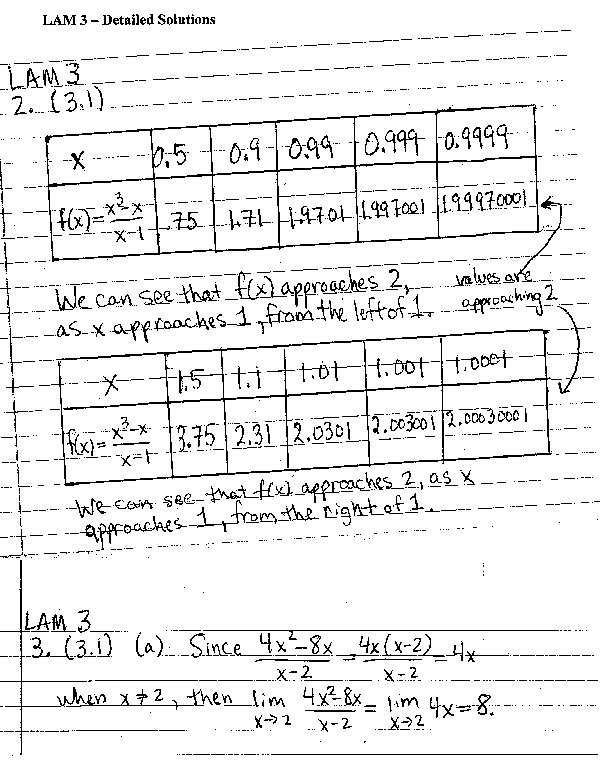 LAM 3 – Detailed Solutions
LAM 3
2. (3.1)
x 0.5 0.9 0.99 0.999 0.9999
f(x)=x³-x/x-1 .75 1.71 1.9701 1.997001 1.99970001
We can see that f(x) approaches 2,
as x approaches 1, from the left of 1.
values are
approaching 2
x 1.5 1.1 1.01 1.001 1.0001
f(x)=x³-x/x-1 3.75 2.31 2.0301 2.003001 2.00030001
We can see that f(x) approaches 2, as x
approaches 1, from the right of 1.
LAM 3
3. (3.1) (a) Since 4x²-8x/x-2 = 4x(x-2)/x-2 = 4x
when x≠2, then lim x→2 4x²-8x/x-2 = lim x→2 4x=8.